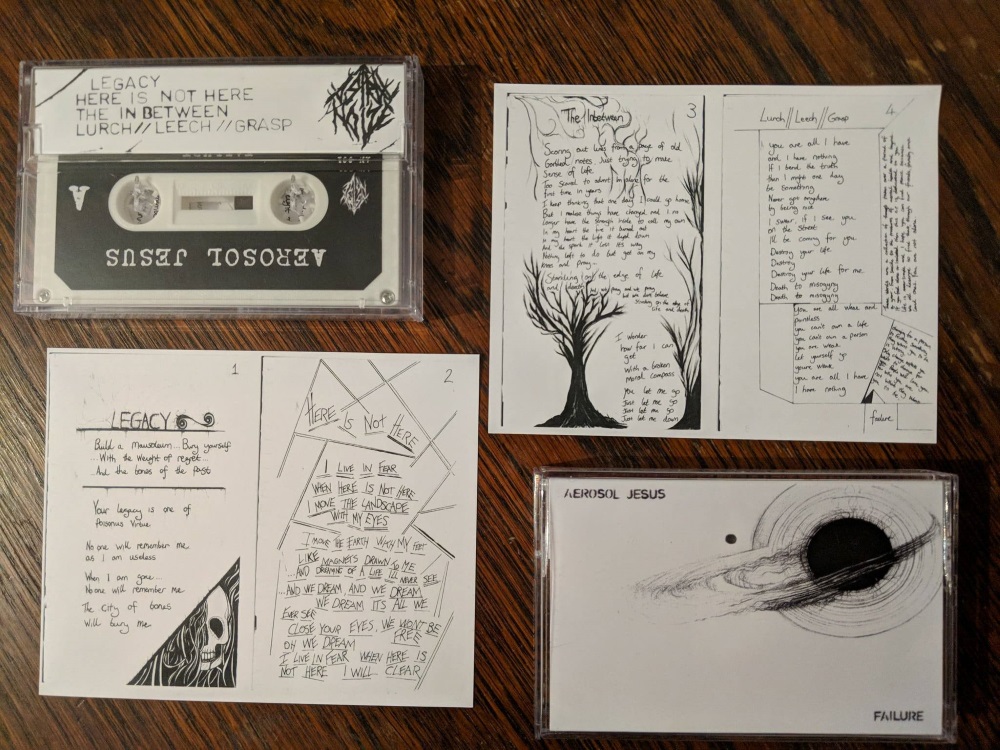 LEGACY
HERE IS NOT HERE
THE IN BETWEEN
LURCH//LEECH//GRASP
ASTRAL
NOIZE
A
AEROSOL JESUS
1
LEGACY
Build a Mausoleum... Bury yourself
...With the weight of regret...
...And the bones of the past
Your legacy is one of
Poisonous Virtue
No one will remember me
as I am useless
When I am gone...
No one will remember me
The City of bones
will bury me
2
HERE IS NOT HERE
I LIVE IN FEAR
WHEN HERE IS NOT HERE
I MOVE THE LANDSCAPE
WITH MY EYES
I MOVE THE EARTH WITH MY FEET
LIKE MAGNETS DRAWN TO ME
...AND DREAMING OF A LIFE ILL NEVER SEE
...AND WE DREAM, AND WE DREAM
WE DREAM ITS ALL WE
EVER SEE
CLOSE YOUR EYES, WE WONT BE
FREE
OH WE DREAM
I LIVE IN FEAR WHEN HERE IS
NOT HERE I WILL CLEAR
3
The Inbetween
lines from a page of old
notes Just trying to make
Sense of life
Too scared to admit for the
first time in years
I keep thinking that one day I could go home
But I realise things have changed and I no
longer have the strength inside to call my own
In my heart the fire it burned out
In my heart the light it dyed down
And the spark it lost it's way
Nothing left to do but get on my
knees and pray...
Standing on the edge of life
and death
and we pray and we pray
Standing on the edge of
life and death
I wonder
how far I can
get
With a broken
moral compass
You let me go
Just let me go
Just let me go
Just let me down
4
Lurch//Leech//Grasp
you are all I have
and I have nothing
If I bend the truth
then I might one day
be something
Never get anywhere
by being nice
I swear if I see you
on the street
I'll be coming for you
Destroy your life
Destroy
Destroy your life for me
Death to misogyny
Death to misogyny
You are all weak and
pointless
you can't own a life
You can't own a person
you are weak
Let yourself go
youre weak
you are all I have
I have nothing
failure
AEROSOL JESUS
FAILURE